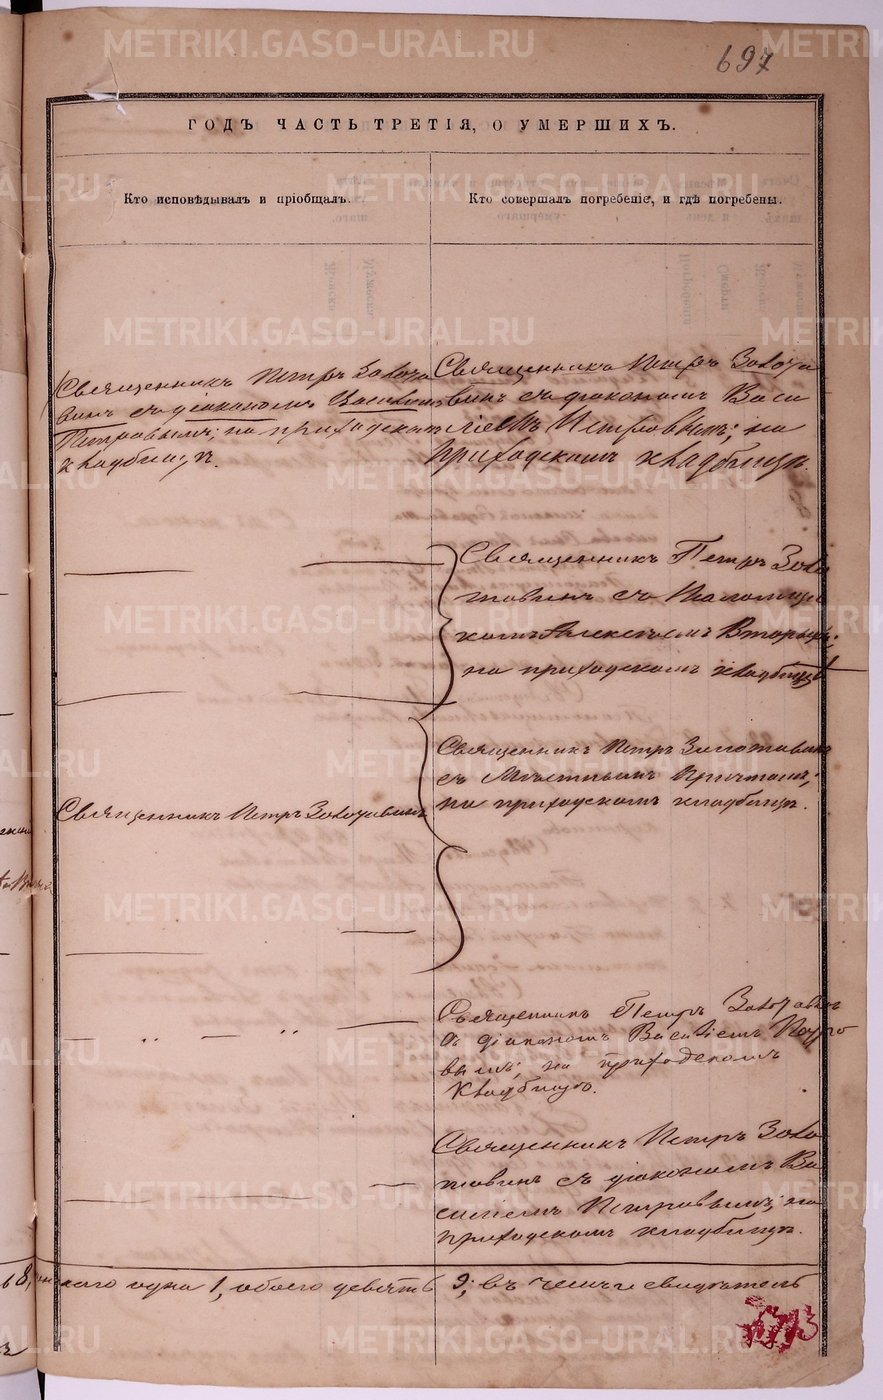 697
ГОДЪ ЧАСТЬ ТРЕТІЯ, О УМЕРШИХЪ.
Кто исповѣдывалъ и пріобщалъ.
Кто совершалъ погребеніе, и гдѣ погребены.
Священникъ Петръ Золота
винъ съ діакономъ Василіемъ
Петровымъ; на приходскомъ
кладбищѣ.
Священникъ Петръ Золота
винъ съ діакономъ Васи
ліемъ Петровымъ; на
приходскомъ кладбищѣ.
Священникъ Петръ Золо
тавинъ съ Псаломщи
комъ Алексѣемъ Вторыхъ;
на приходскомъ кладбищѣ
Священникъ Петръ Золотавинъ
съ Мѣстнымъ Причтомъ;
на приходскомъ кладбищѣ.
Священникъ Петръ Золотавинъ
Священникъ Петръ Золотавинъ
съ діакономъ Василіемъ Петро
вымъ; на приходскомъ
кладбищѣ.
Священникъ Петръ Золо
тавинъ съ діакономъ Ва
силіемъ Петровымъ; на
приходскомъ кладбищѣ.
8, женскаго одна 1, обоего девять 9; въ чемъ и свидѣтель
METRIKI.GASO-URAL.RU